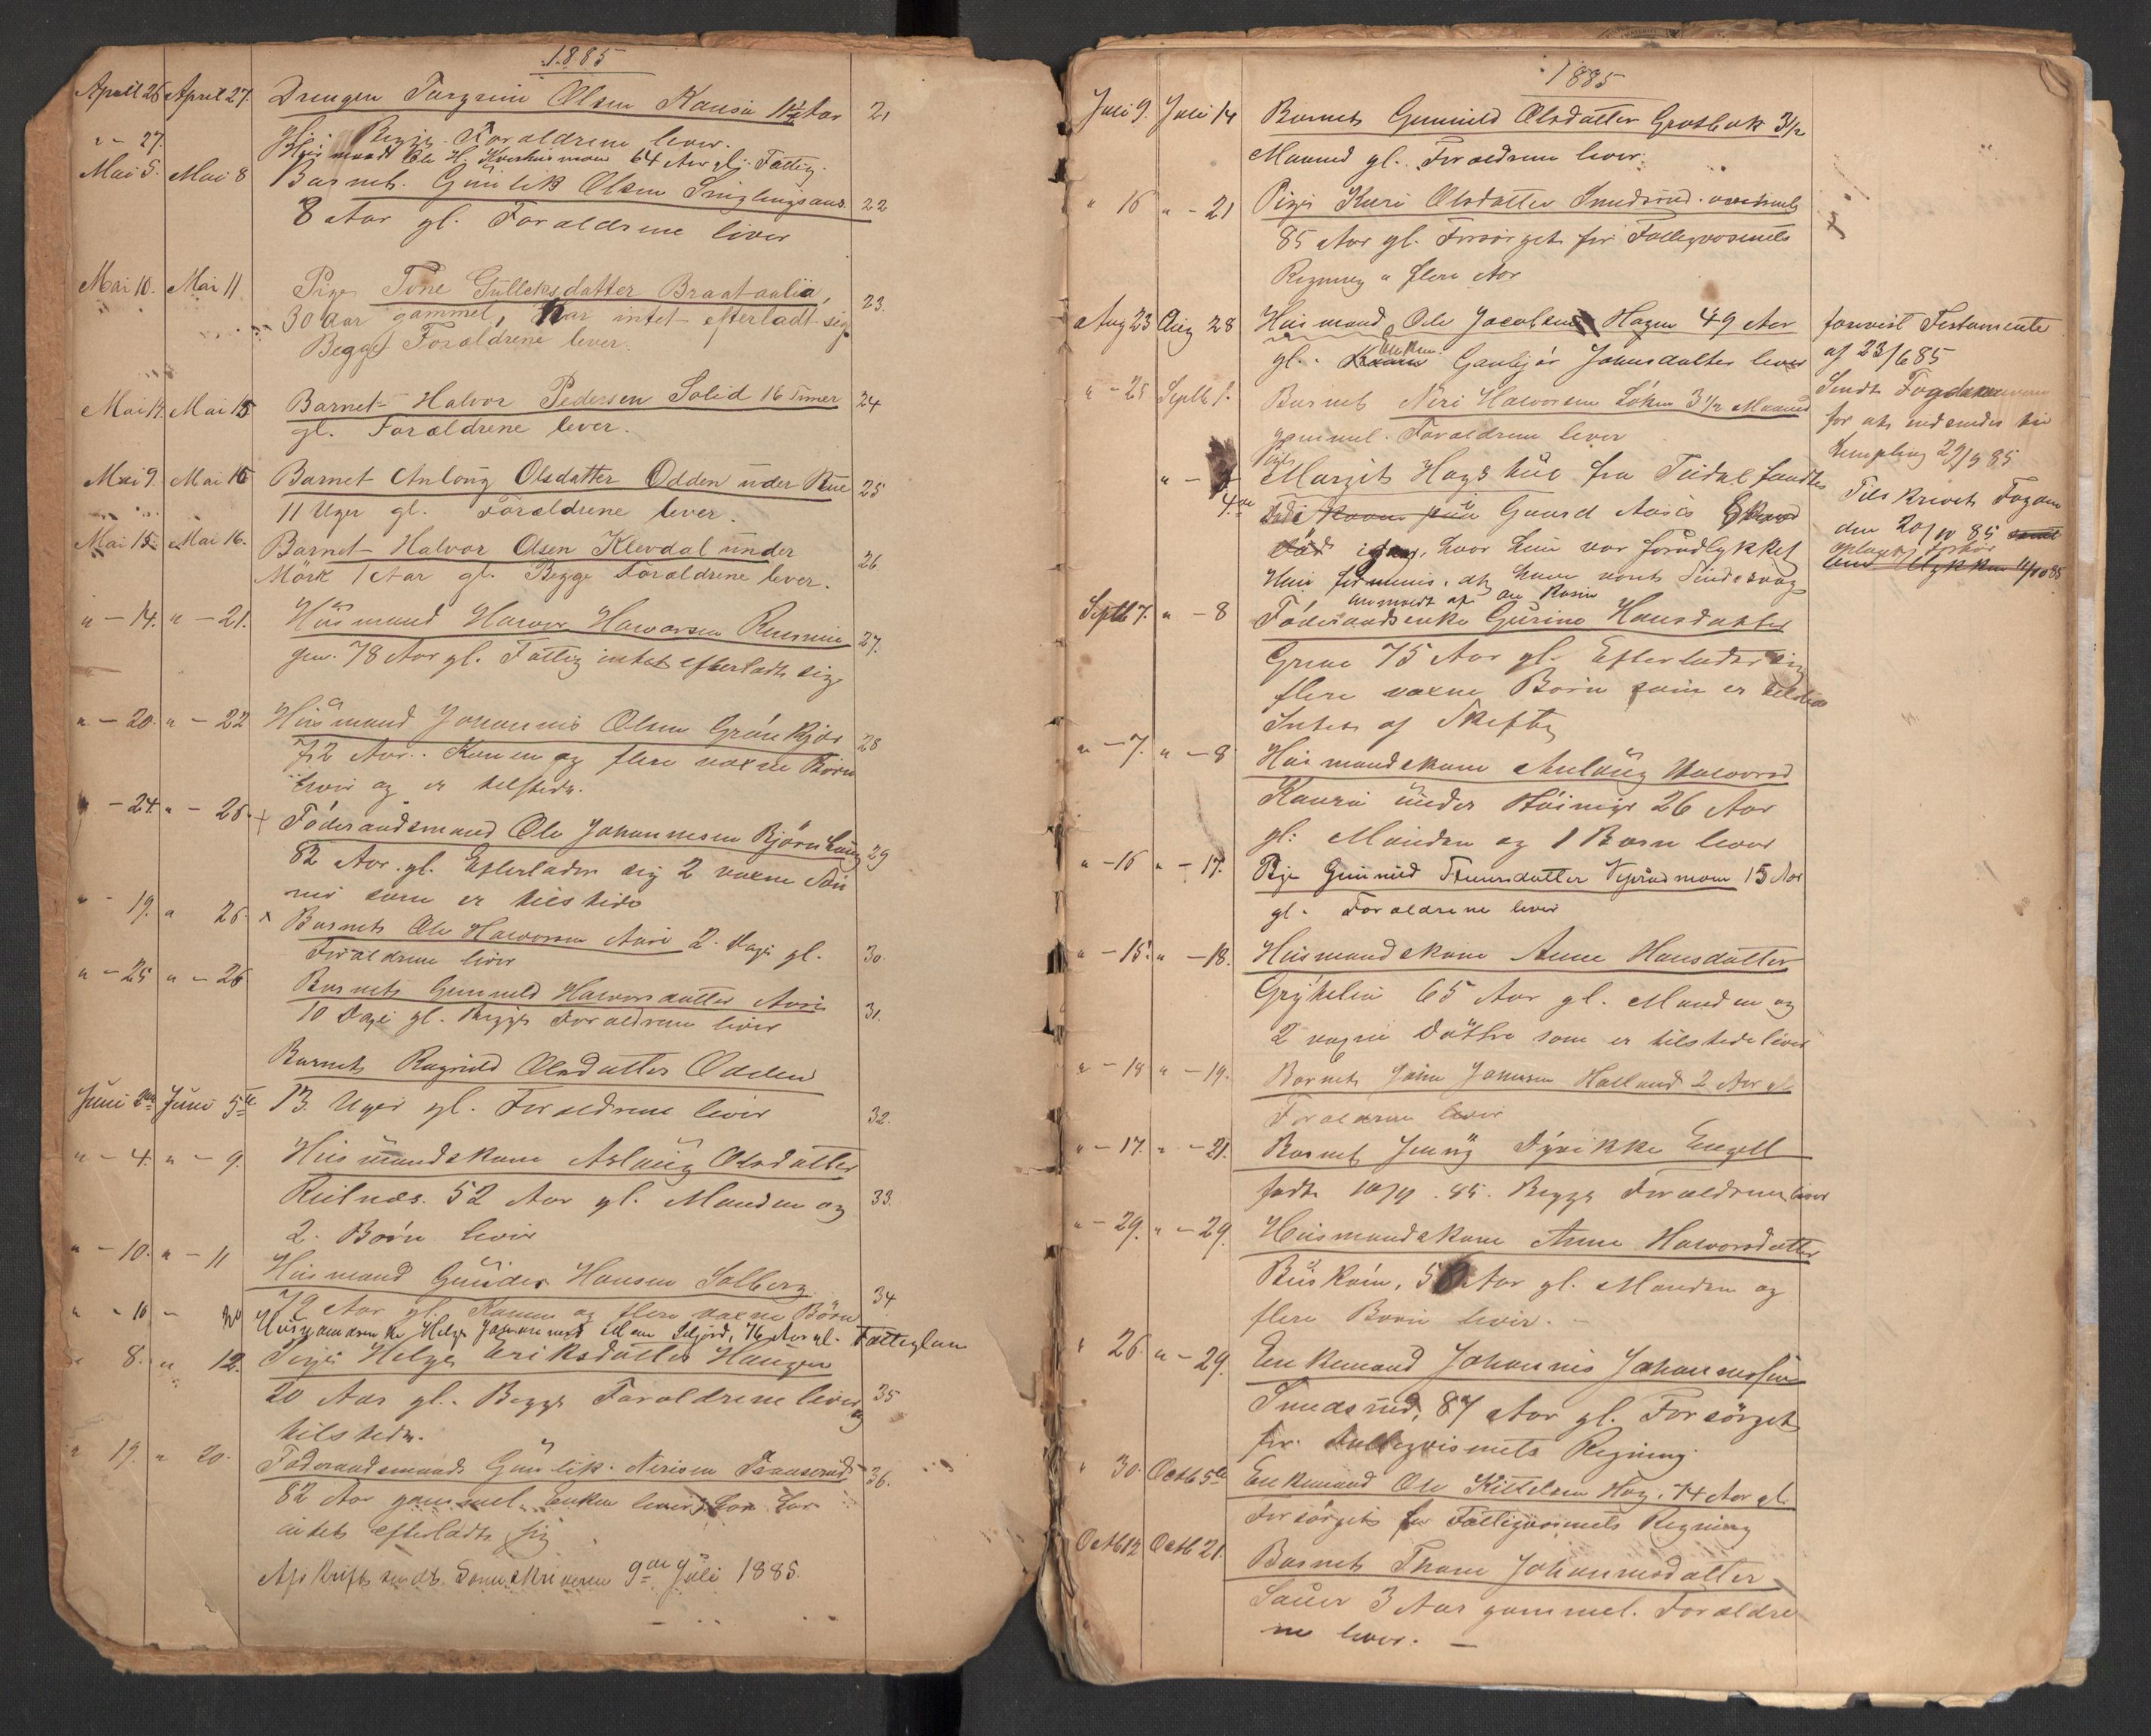 1885
April 26 April 27. Drengen Torgrim Olsen Kaasa 1½ Aar 21
Begge Forældrene lever.
" - 27. Huusmand Ole H. Kverhusmoen 64 Aar gl. Fattig.
Mai 5. Mai 8 Barnet Gunlek Olsen 22
8 Aar gl. Forældrene lever
Mai 10. Mai 11 Pige Tone Gulleksdatter Braataalia, 23.
30 aar gammel, har intet efterladt sig
Begge Forældrene lever.
Mai 14. Mai 15 Barnet Halvor Pedersen Solid 16 Timer 24
gl. Forældrene lever.
Mai 9. Mai 15 Barnet Anlaug Olsdatter Odden under Rue 25
11 Uger gl. Forældrene lever.
Mai 15. Mai 16. Barnet Halvor Olsen Klevdal under 26.
Mörk 1 Aar gl. Begge Forældrene lever.
" - 14. " - 21. Husmand Halvor Halvorsen 27.
78 Aar gl. Fattig intet efterladt sig
" - 20. " - 22 Husmand Johannis Olsen Grönkjær 28
72 Aar. Konen og flere voxne Börn
lever og er tilstede.
" - 24. " - 26. + Föderaadsmand Ole Johannesen Björnhaug 29
82 Aar gl. Efterlader sig 2 voxne Søn
ner som er tilstede
" - 19. " 26. x Barnet Ole Halvorsen Aasi 2 Dage gl. 30.
Forældrene lever
" - 25 " - 26 Barnet Gunneld Halvorsdatter Aasi 31.
10 Dage gl. Begge Forældrene lever
Barnet Ragnild Olsdatter Odden
Juni 2den Juni 5te 13 Uger gl. Forældrene lever 32.
" - 4. " - 9. Husmandskone Aslaug Olsdatter
52 Aar gl. Manden og 33.
2 Börn lever
" - 10. " - 11 Husmand Gunder Hansen Solberg 34
79 Aar gl. Konen og flere voxne Börn
" - 10 - Helge 76 Aar gl. Fattiglem
" 8. " 12. Pige Helge Eriksdatter Haugen
20 Aar gl. Begge Forældrene lever og 35
tilstede.
" 19. " 20. Föderaadsmand Gunlik Nirisen 36.
82 Aar gammel. Enken lever, har
intet efterladt sig
Afskrift sendt Sorenskriveren 9de Juli 1885.
1885
Juli 9. Juli 14 Barnet Gunnild Olsdatter Grotbæk 3½
Maaned gl. Forældrene lever.
" 16 " - 21 Pige Kari Olsdatter Smedsrud
85 Aar gl. Forsörget for Fattigvæsenets
Regning i flere Aar
Aug 23 Aug 28 Husmand Ole Jacobsen Hagen 49 Aar
gl. Enken Gunbjör Johnsdatter lever
forevist Testamente
af 23/6 85
" - 25 Septb 1. Barnet Niri Halvorsen Löken 3½ Maaned
gammel. Forældrene lever
Sendt Fogden
for at indsendes til
Stempling 29/9 85
Pige
" - 4de Margit Hagshue fra Tudal fandtes
död Gaard Aase
igaar, hvor hun var forulykket
Hun formenes at have været Sindssvag
anmeldt af
Tilskrevet Fogden
den 20/10 85
optaget Forhör
Septb 7. " - 8 Föderaadsenke Gurine Hansdatter
Grene 75 Aar gl. Efterlader sig
flere voxne Börn som er tilstede
Intet af Skifte
" - 7. " - 8 Husmandskone Anlaug Halvorsd
Kaasa under Höinige 26 Aar
gl: Manden og 1 Barn lever
" - 16 " - 17. Pige Gunnild 15 Aar
gl. Forældrene lever
" - 15. " - 18. Husmandskone Anne Hansdatter
Grÿtelia 65 Aar gl. Manden og
2 voxne Döttre som er tilstede lever
" - 18 " - 19. Barnet John Jansen Holland 2 Aar gl.
Forældrene lever
" - 17. " - 21. Barnet Jenny Dÿrikke Engell
født 10/9. 85. Begge Forældrene lever
" - 29. " - 29. Husmandskone Anne Halvorsdatter
Aar gl. Manden og
flere Börn lever. -
" 26. " - 29. Enkemand Johannis Johannesen
Smedsrud, 87 Aar gl. Forsörget
for Fattigvæsenets Regning.
" 30. Octb 5te Enkemand Ole Kittelsen Hag. 74 Aar gl.
Forsörget for Fattigvæsenets Regning
Octb 12 Octb 21. Barnet Thone Johannesdatter
Sauer 3 Aar gammel. Forældre
ne lever. -